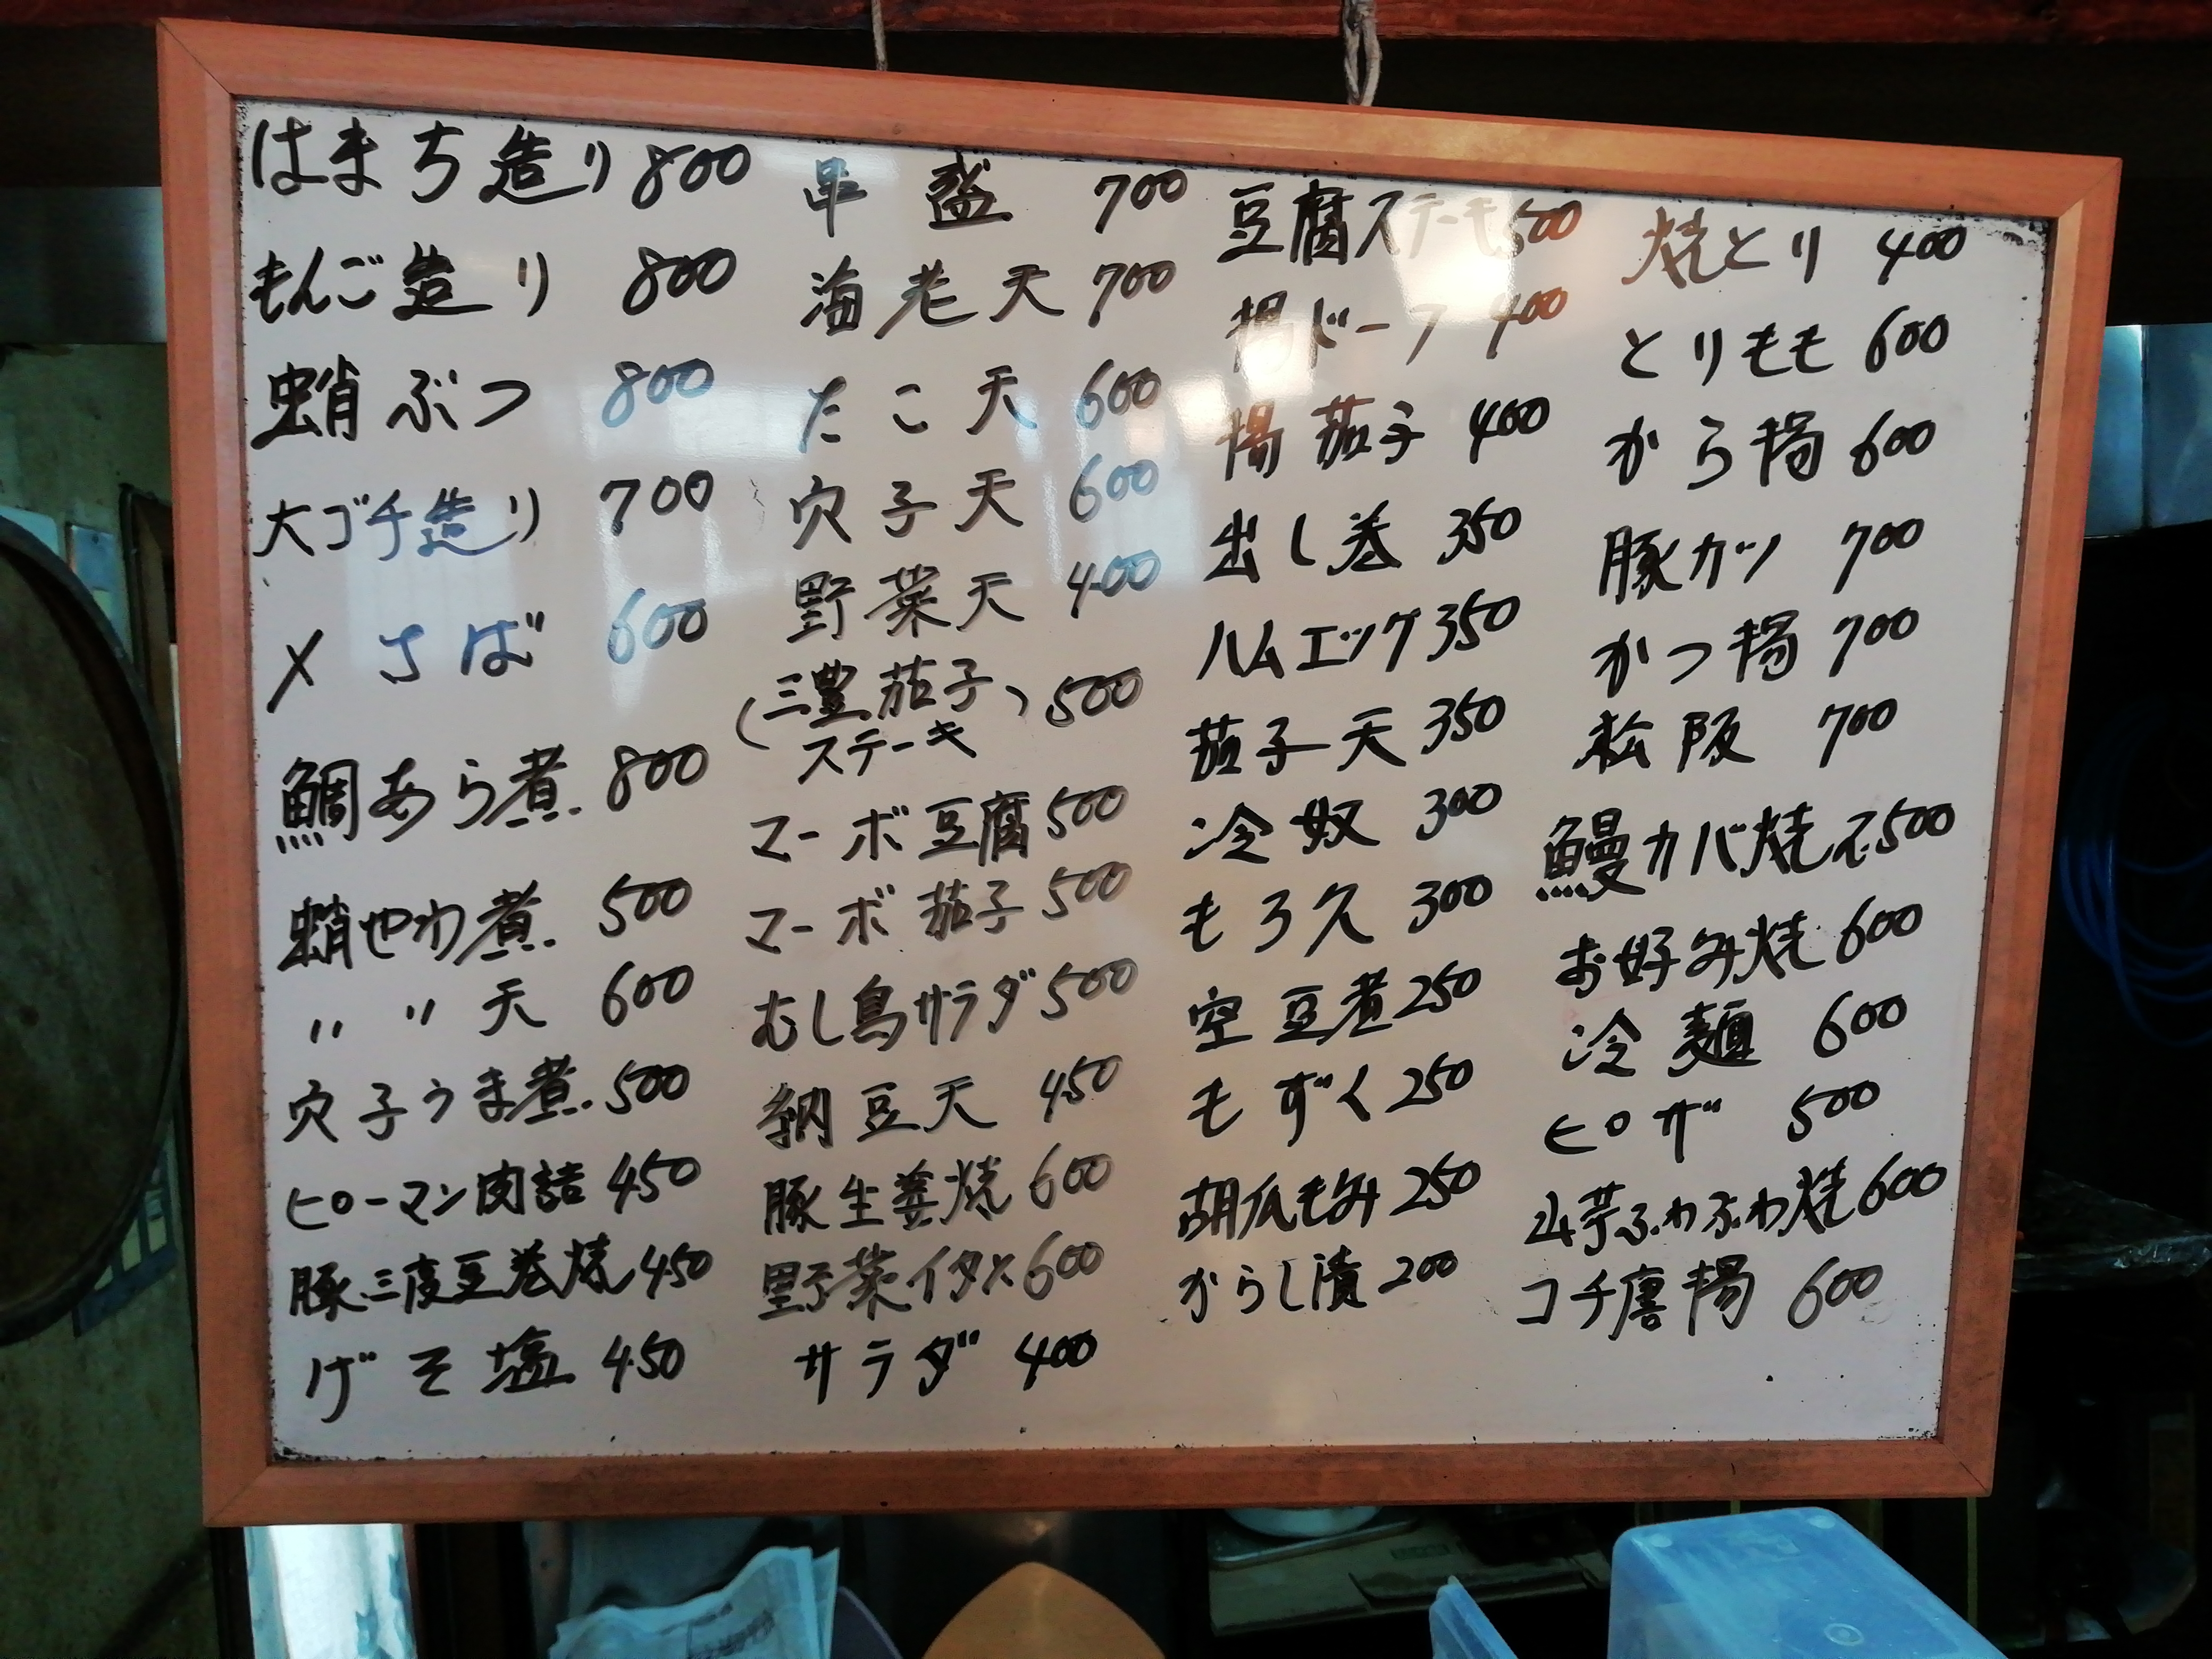 はまち造り 800
もんご造り 800
蛸ぶつ 800
大ゴチ造り 700
〆さば 600
鯛あら煮 800
蛸やわ煮 500
〃 〃 天 600
穴子うま煮 500
ピーマン肉詰 450
豚三度豆巻焼 450
げそ塩 450
串盛 700
海老天 700
たこ天 600
穴子天 600
野菜天 400
(三豊茄子) 500
ステーキ
マーボ豆腐 500
マーボ茄子 500
むし鳥サラダ 500
納豆天 450
豚生姜焼 600
野菜イタメ 600
サラダ 400
豆腐ステーキ 500
揚ドーフ 400
揚茄子 400
出し巻 350
ハムエッグ 350
茄子天 350
冷奴 300
もろ久 300
空豆煮 250
もずく 250
胡瓜もみ 250
からし漬 200
焼とり 400
とりもも 600
から揚 600
豚カツ 700
かつ揚 700
松阪 700
鰻カバ焼 2.500
お好み焼 600
冷麺 600
ピザ 500
山芋ふわふわ焼 600
コチ唐揚 600